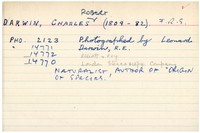 ROBERT
DARWIN, CHARLES (1809-82). F.R.S.
PHO. 2123 Photographed by Leonard
" 14771 Darwin, R.E.
" 14772 Elliott & Fry
" 14770 London Stereoscopic Company
NATURALIST, AUTHOR OF "ORIGIN
OF SPECIES."